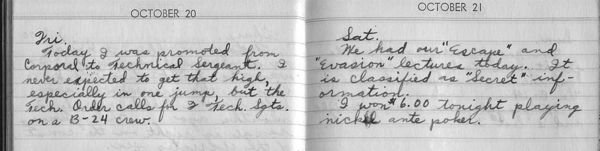 OCTOBER 20
Fri.
Today I was promoted from
Corporal to Technical Sergeant. I
never expected to get that high,
especially in one jump, but the
Tech. Order calls for 2 Tech. Sgts.
on a B-24 crew.
OCTOBER 21
Sat.
We had our "Escape" and
"Evasion" lectures today. It
is classified as "Secret" inf-
ormation.
I won $6.00 tonight playing
nickel ante poker.